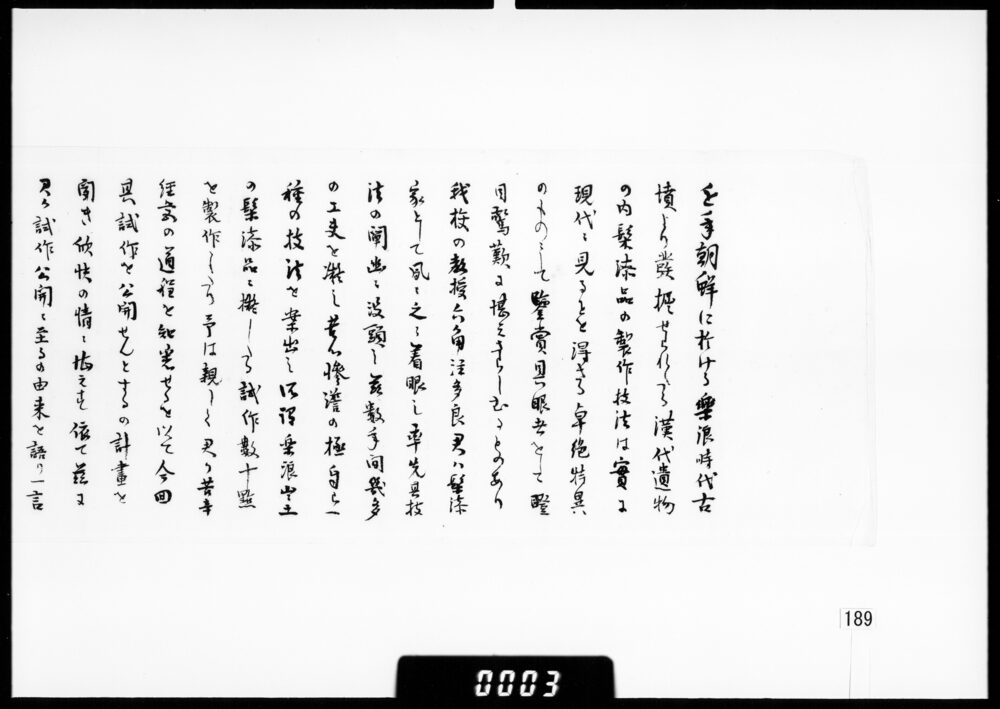 近年朝鮮に於ける樂浪時代古
墳より發掘せられたる漢代遺物
の内髹漆品の製作技法は實に
現代に見ることを得ざる卓絶特異
のものにして鑒賞具眼者をして瞪
目驚歎に堪えざらしむるものあり
我校の教授六角注多良君ハ髹漆
家として夙に之に着眼し率先其技
法の闡幽に没頭し玆数年間幾多
の工夫を凝し苦心慘澹の極自ら一
種の技法を案出し所謂樂浪出土
の髹漆品に擬したる試作数十點
を製作したり予は親しく君の苦辛
經営の道程を知悉せるを以て今回
其試作を公開せんとするの計畫を
聞き欣快の情に堪えず依て茲に
君が試作公開に至るの由来を語り一言
189
0003